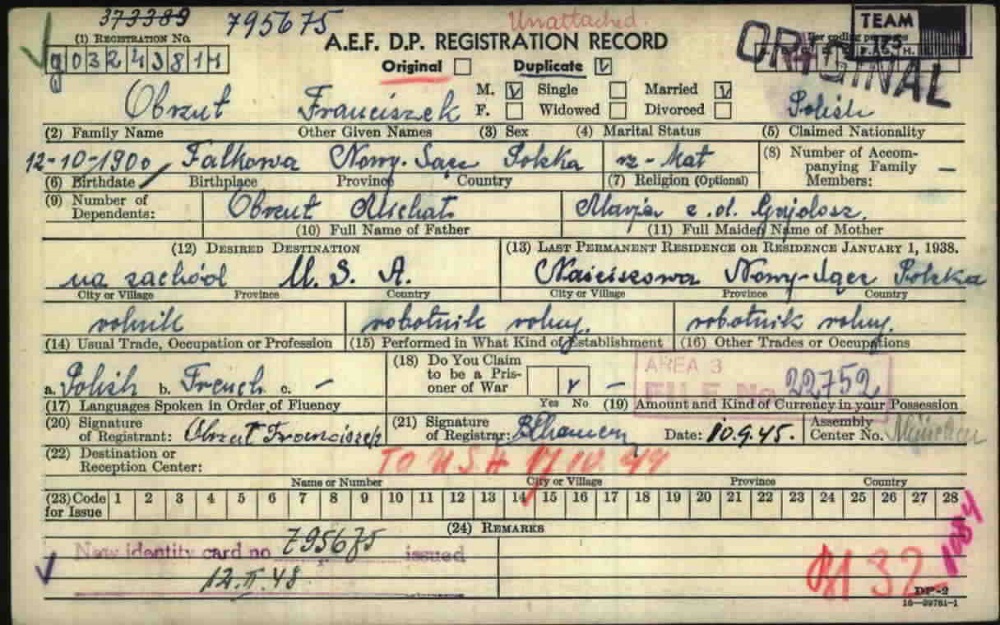 373389 795675 Unattached. TEAM
(1) REGISTRATION No. A.E.F. D.P. REGISTRATION RECORD For coding purposes
ORIGINAL
Original Duplicate
M. Single Married
Obrzut Franciszek F. Widowed Divorced Polish
(2) Family Name Other Given Names (3) Sex (4) Marital Status (5) Claimed Nationality
12-10-1900 Falkowa Nowy-Sącz Polska rz-kat (8) Number of Accom-
panying Family
Members: —
(6) Birthdate Birthplace Province Country (7) Religion (Optional)
(9) Number of
Dependents: Obrzut Michał Marja z.d. Gajdosz.
(10) Full Name of Father (11) Full Maiden Name of Mother
(12) DESIRED DESTINATION (13) LAST PERMANENT RESIDENCE OR RESIDENCE JANUARY 1, 1938.
na zachód U.S.A. Naściszowa Nowy-Sącz Polska
City or Village Province Country City or Village Province Country
rolnik robotnik rolny. robotnik rolny.
(14) Usual Trade, Occupation or Profession (15) Performed in What Kind of Establishment (16) Other Trades or Occupations
a. Polish b. French c. — (18) Do You Claim
to be a Pris-
oner of War
Yes No — AREA 3
FILE No 22752
(17) Languages Spoken in Order of Fluency (19) Amount and Kind of Currency in your Possession
(20) Signature
of Registrant: Obrzut Franciszek (21) Signature
of Registrar: Date: 10.9.45. Assembly
Center No. München
(22) Destination or
Reception Center: TO USA
Name or Number City or Village Province Country
(23) Code
for Issue 1 2 3 4 5 6 7 8 9 10 11 12 13 14 15 16 17 18 19 20 21 22 23 24 25 26 27 28
(24) REMARKS
New identity card no 795675 issued
12.II.48
32
DP-2
16—39761-1